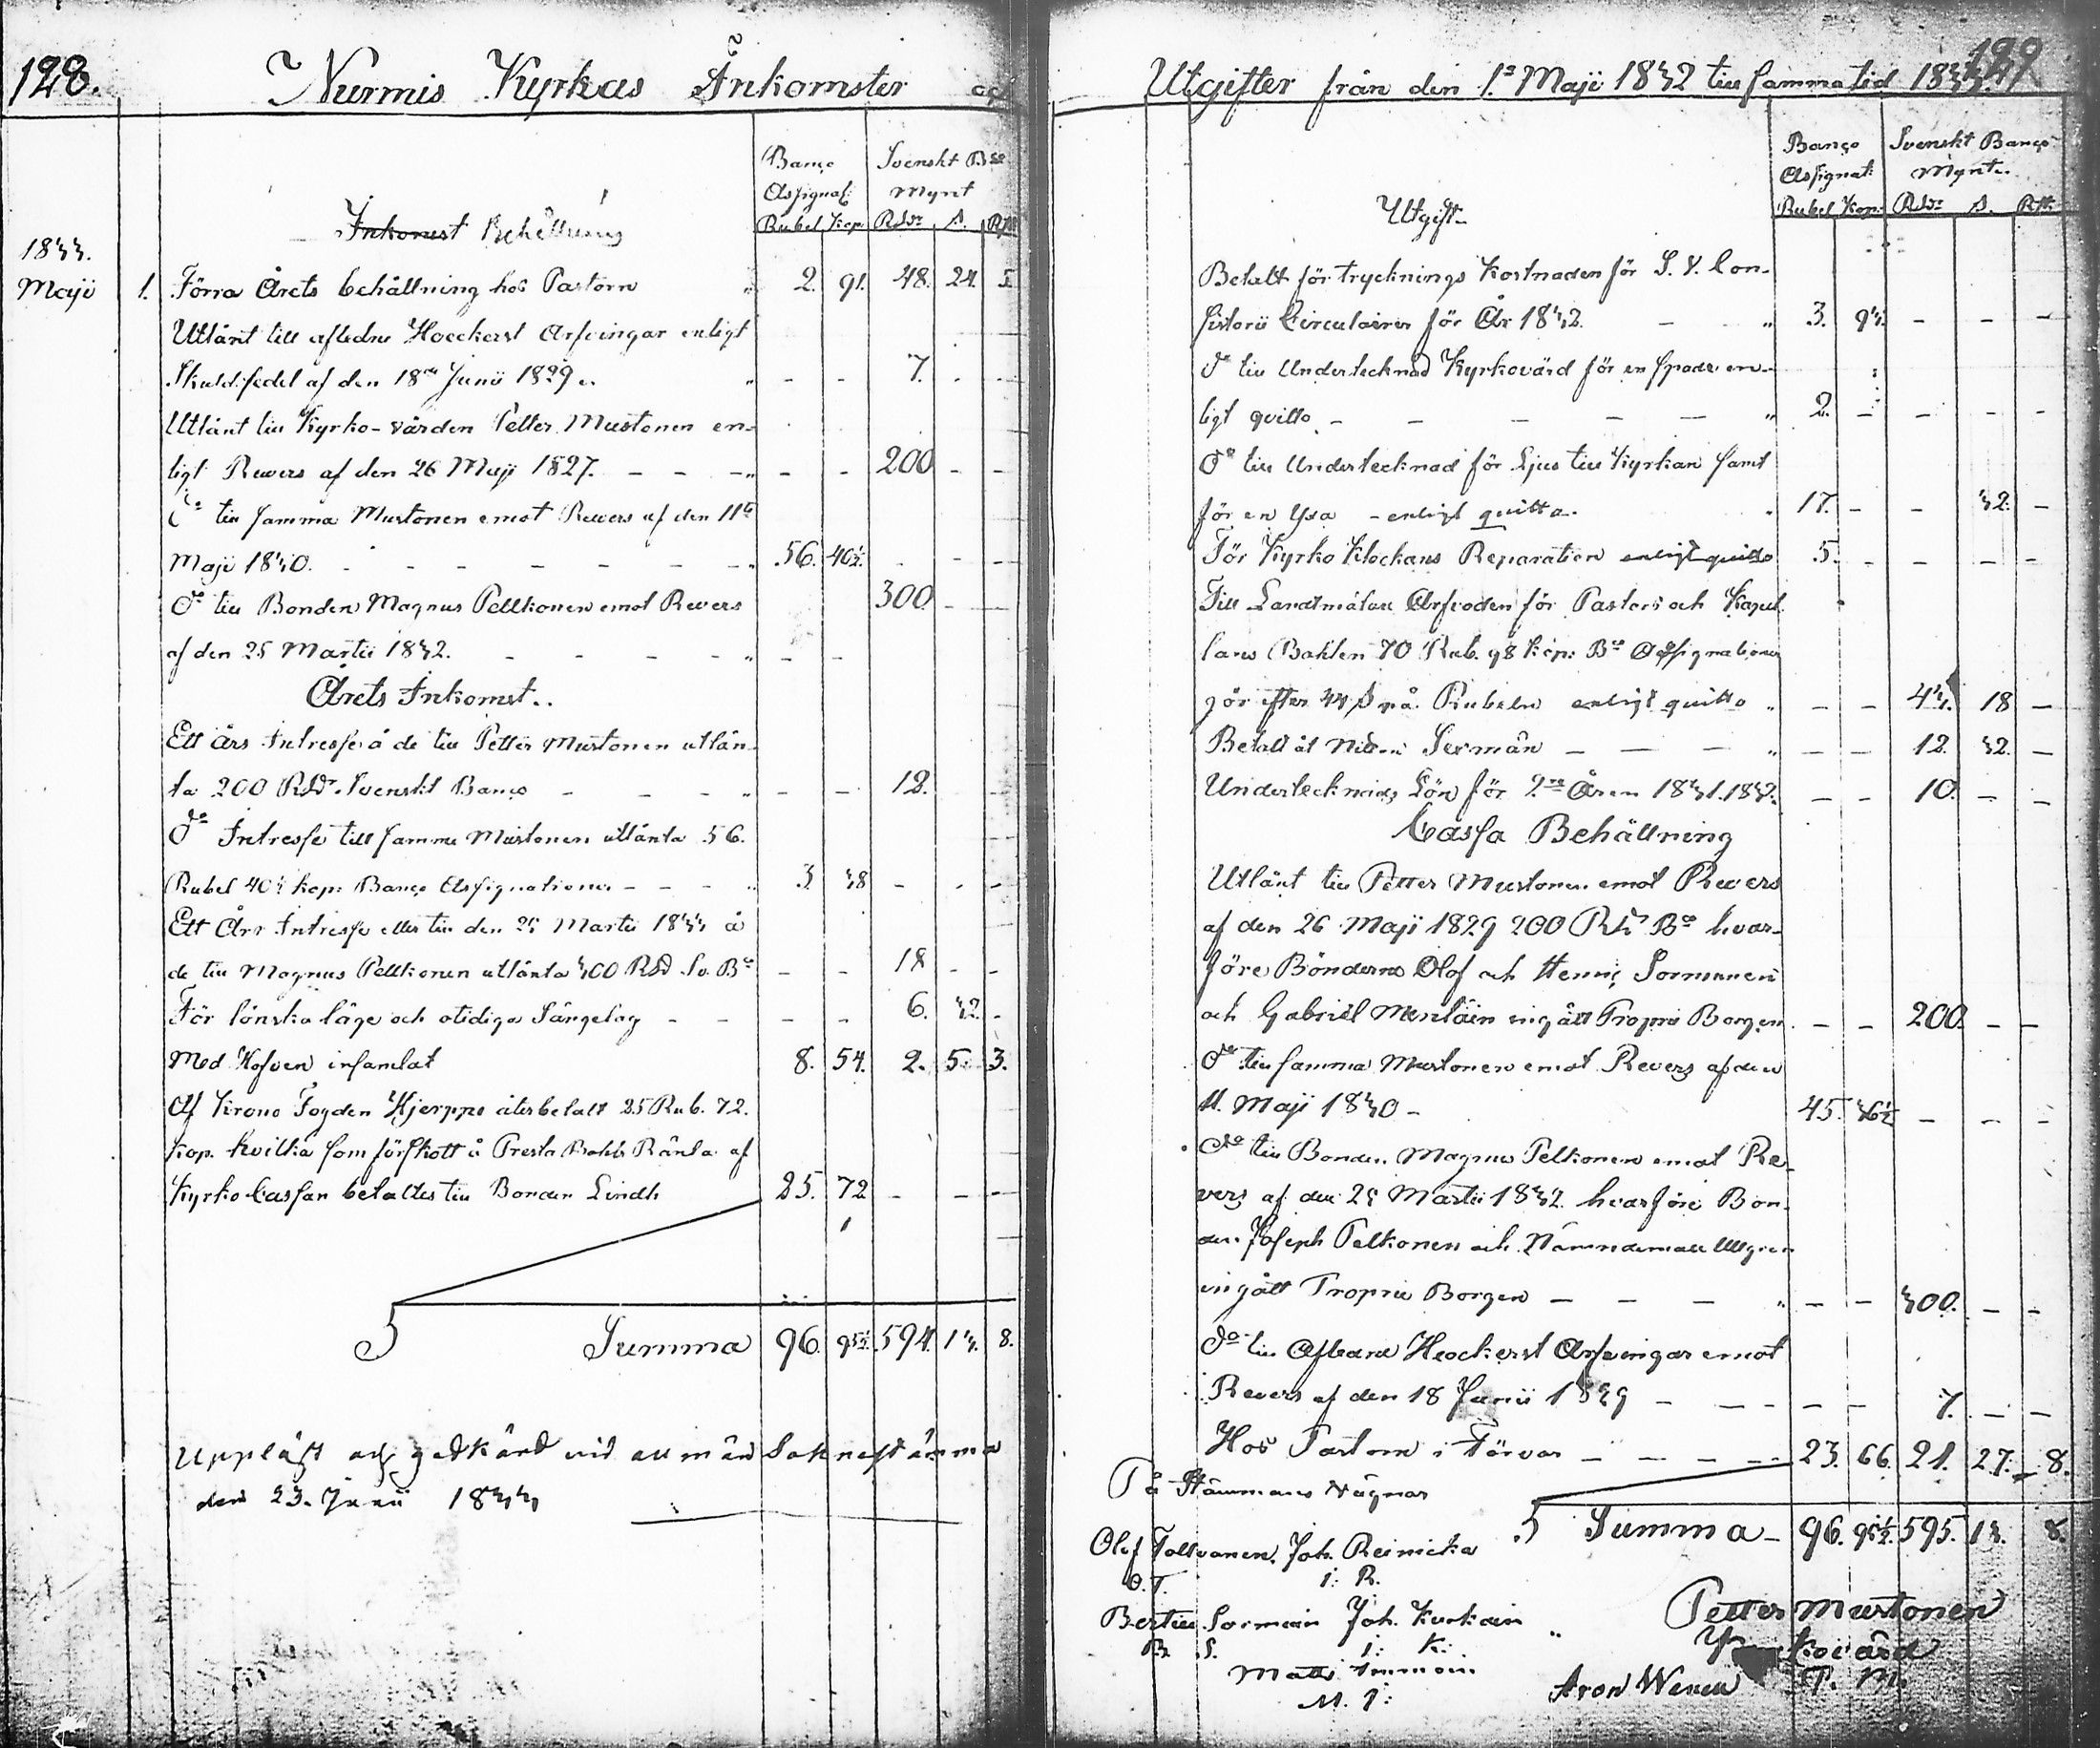 128.
Nurmis Kyrkas Inkomster och
Banço Assignat:
Svenskt Bço Mynt
Rubel Kop. Rdr ß. Rst
Inkomst Behållning
1833.
Maji 1. Förra Årets behållning hos Pastorn „ 2. 91. 48. 24. 5.
Utlånt till afledne Hoeckerst Arfvingar enligt
Skuldsedel af den 18de Junii 1829. „ - - 7. - -
Utlånt till Kyrko-värden Petter Mustonen en-
ligt Revers af den 26 Maji 1827. - - - „ - - 200 - -
Do till samma Mustonen emot Revers af den 11te
Maji 1830. - - - - - - „ 56. 40½. - - -
Do till Bonden Magnus Pelkonen emot Revers 300. - -
af den 25 Martii 1832. - - - - „ - -
Årets Inkomst..
Ett års Intresse å de till Petter Mustonen utlån-
ta 200 Rdr. Svenskt Banço - - - „ - - 12.
Do Intresse till samma Mustonen utlånta 56.
Rubel 40½ kop: Banço Assignationer - - - „ 3. 38 - - -
Ett Års Intresse eller till den 25 Martii 1833 å
de till Magnus Pelkonen utlånta 300 Rdr Sv. Bço - - 18 - -
För lönska läge och otidiga Sängelag - - - - 6. 32. -
Med Hofven insamlat 8. 54. 2. 5. 3.
Af Krono Fogden Hjerppe återbetalt 25 Rub. 72.
Kop. hvilka som förskott å Presta Bohls Ränta af
Kyrko Cassan betaltes till Bonden Lindh 25. 72 - - -
Summa 96. 95½. 594. 13. 8.
Uppläst och godkänd vid allmän Soknestämma
den 23. Junii 1833
129
Utgifter från den 1a Maji 1832 till samma tid 1833.
Banço Assignat:
Svenskt Banço Mynt.
Rubel Kop. Rdr ß. Rst.
Utgift.
Betalt för trycknings Kostnaden för S. V. Con-
sistorii Circulairer för År 1832. - - „ 3. 93. - - -
Do till Undertecknad Kyrkovärd för en spade en-
ligt qvitto. - - - - - „ 2. - - - -
Do till Undertecknad för Ljus till Kyrkan samt
för en Yxa - enligt qvitto. „ 17. - - 32. -
För Kyrko Klockans Reparation enligt qvitto 5. - - - -
Till Landtmätare Arfvoden för Pastors och Kapel-
lans Bohlen 70 Rub. 98 kop: Bço Assignationer
gör efter 30 ß på Rubeln enligt qvitto „ - - 44. 18 -
Betalt åt Nils Sermän - - - „ - - 12. 32. -
Undertecknads Lön för 2ne Åren 1831. 1832. - - 10. - -
Cassa Behållning
Utlånt till Petter Mustonen emot Revers
af den 26 Maji 1829 200 Rdr Bço hvar-
före Bönderna Olof och Henric Sormunen
och Gabriel Mustoin ingått Proprie Borgen. - - 200. - -
Do till samma Mustonen emot Revers af den
11. Maji 1830 - 45. 36½ - - -
Do till Bonden Magnus Pelkonen emot Re-
vers af den 25 Martii 1832. hvarföre Bon-
den Joseph Pelkonen och Nämndeman
ingått Proprie Borgen - - - „ - - 300. - -
Do till Afledne Hoeckerst Arfvingar emot
Revers af den 18 Junii 1829 - - - - - 7. - -
Hos Pastorn i Förvar - - - - 23. 66. 21. 27. 8.
På Stämmans Vägnar
Summa - 96. 95½. 595. 13. 8.
Olof Tolvanen. Joh. Reinicka
O. T. i: R.
Bertill Sormuin Joh. Kurkain
B. S. i: K:
Matts Immoin
M. I:
Petter Mustonen
Kyrkovärd
P. M.
Aron Weneu